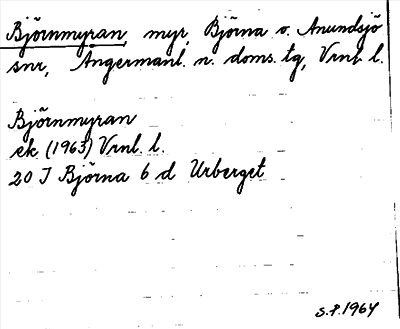 Björnmyran, myr, Björna o. Anundsjö
snr, Ångermanl. n. doms. tg, Vrnl. l.
Björnmyran
ek (1963) Vrnl. l.
20 I Björna 6 d Urberget
S.P. 1964